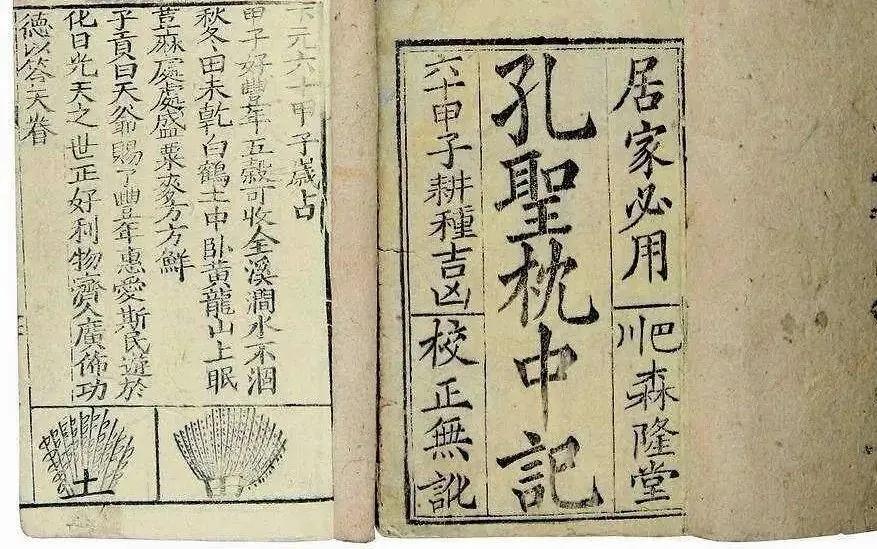 居家必用
巴川森隆堂
孔聖枕中記
六十甲子耕種吉凶
校正無訛
下元六十甲子歲占
甲子好豐年五穀可收全溪澗水不涸
秋冬田未乾白鶴土中臥黃龍山上眠
荳麻處處盛粟麥方方鮮
子貢曰天爺賜了豐年惠愛斯民遊於
化日光天之世正好利物濟人廣佈功
德以答天眷
田
土